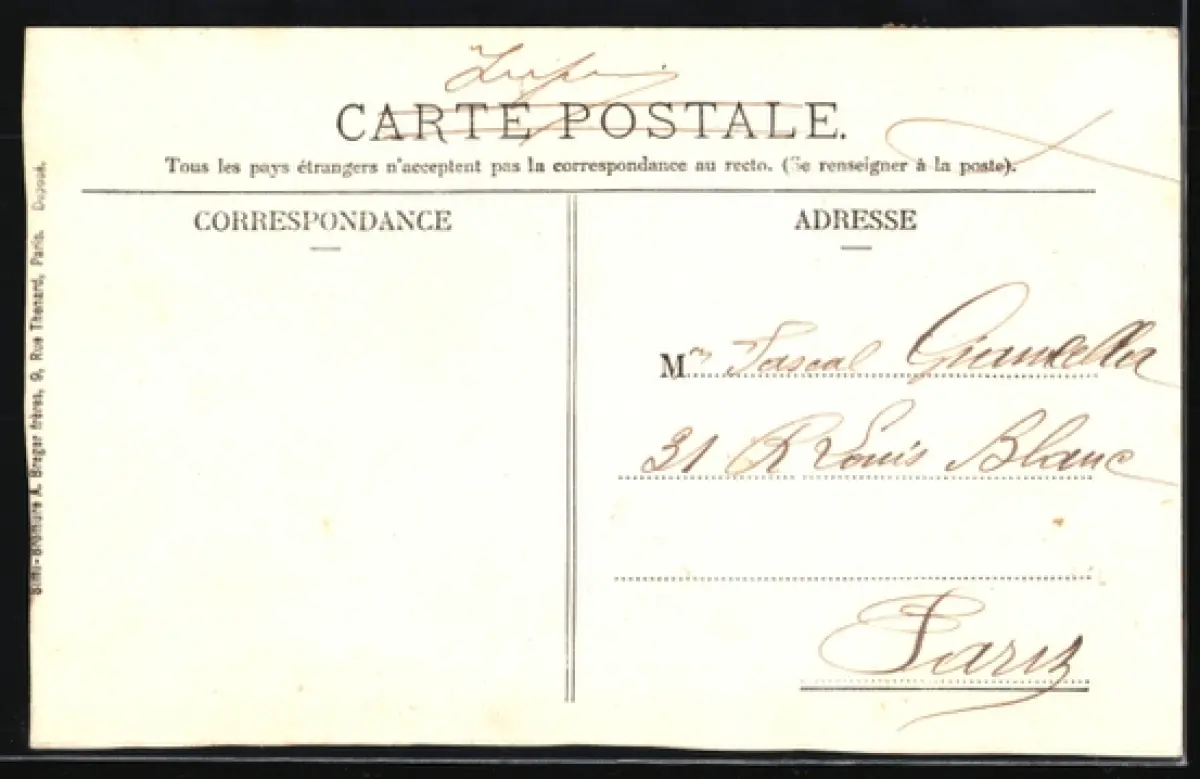 CARTE POSTALE.
Tous les pays étrangers n'acceptent pas la correspondance au recto. (Se renseigner à la poste).
CORRESPONDANCE
ADRESSE
Mr Pascal
31 R Louis Blanc
Paris
A. Breger frères, 9, Rue Thenard, Paris.